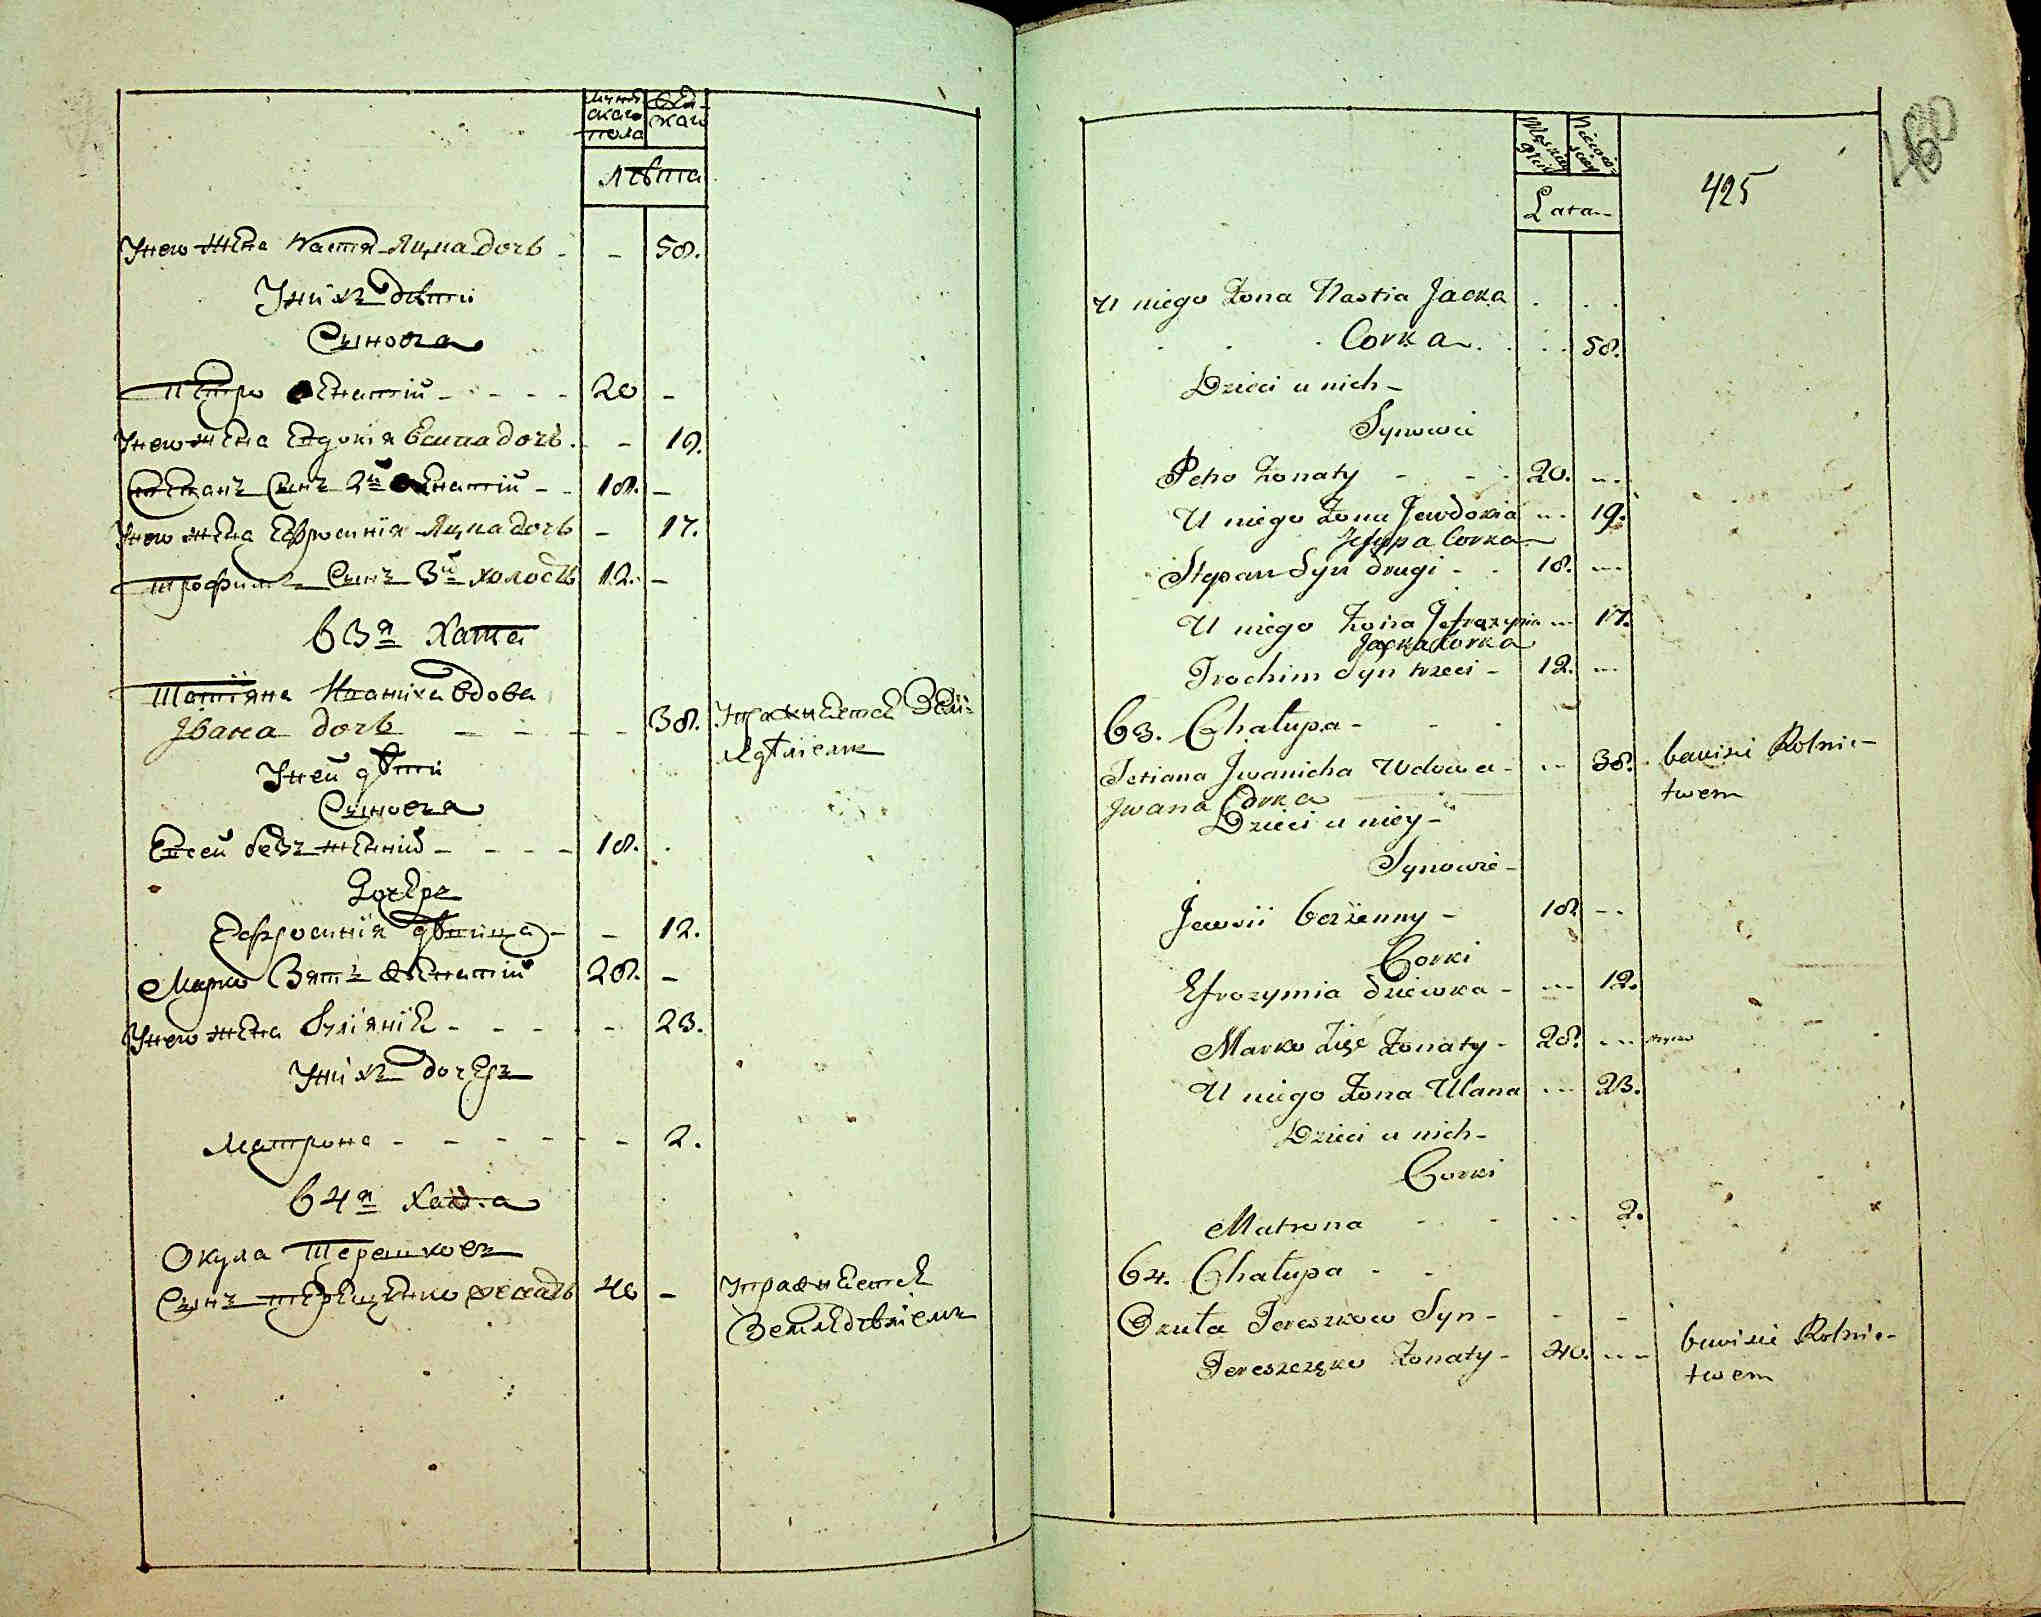 мужескаго пола
женскаго
лѣта
Унего жена Настя Яцка дочь - - 58.
Унихъ дѣти
Сыновя
Петро женатій - - - - 20 -
Унего жена Евдокія Есипа дочь. - 19.
Степанъ Сынъ 2й женатій - - 18. -
Унего жена Ефросинія Яцка дочь - 17.
Трофимъ Сынъ 3й холостъ 12. -
63я Хата
Татіяна Иваниха вдова
Івана дочь - - - - 38. Упражняется Зем-
лѣделіемъ
Уней дѣти
Сыновя
Евсей безъ женній - - - - 18. .
Дочеръ
Ефросинія дѣвица - - 12.
Марко Зять женатій 28. -
Унего жена Уліяніе - - - - 23.
Унихъ дочеръ
Матрона - - - - - - 2.
64я Хата
Окула Терешковъ
Сынъ терещенко женатъ 40 - Упражняется
Земледѣліемъ
Męzkiey płci
Niewiesciey
Lata
425
480
U niego Żona Nastia Jacka . . .
Corka . . . 58.
Dzieci u nich -
Synowie
Petro Żonaty - - - 20. --
U niego Żona Jewdokia -- 19.
Jesypa Corka
Stepan Syn drugi - - 18. ---
U niego Żona Jefrozynia -- 17.
Jacka Corka
Trochim Syn trzeci - 12. ---
63. Chałupa - - -
Tetiana Jwanicha Wdowa - -- 38. bawi się Rolnic-
twem
Jwana Corka
Dzieci u niey -
Synowie -
Jewsii bezżenny - 18 --
Corki
Efrozymia dziewka - --- 12.
Marko Zięć Żonaty - 28. ---
U niego Żona Ulana --- 23.
Dzieci u nich -
Corki
Matrona - - -- 2.
64. Chałupa - -
Okuła Tereszkow Syn - - -
Tereszczęko Żonaty - 40. --- bawi się Rolnic-
twem